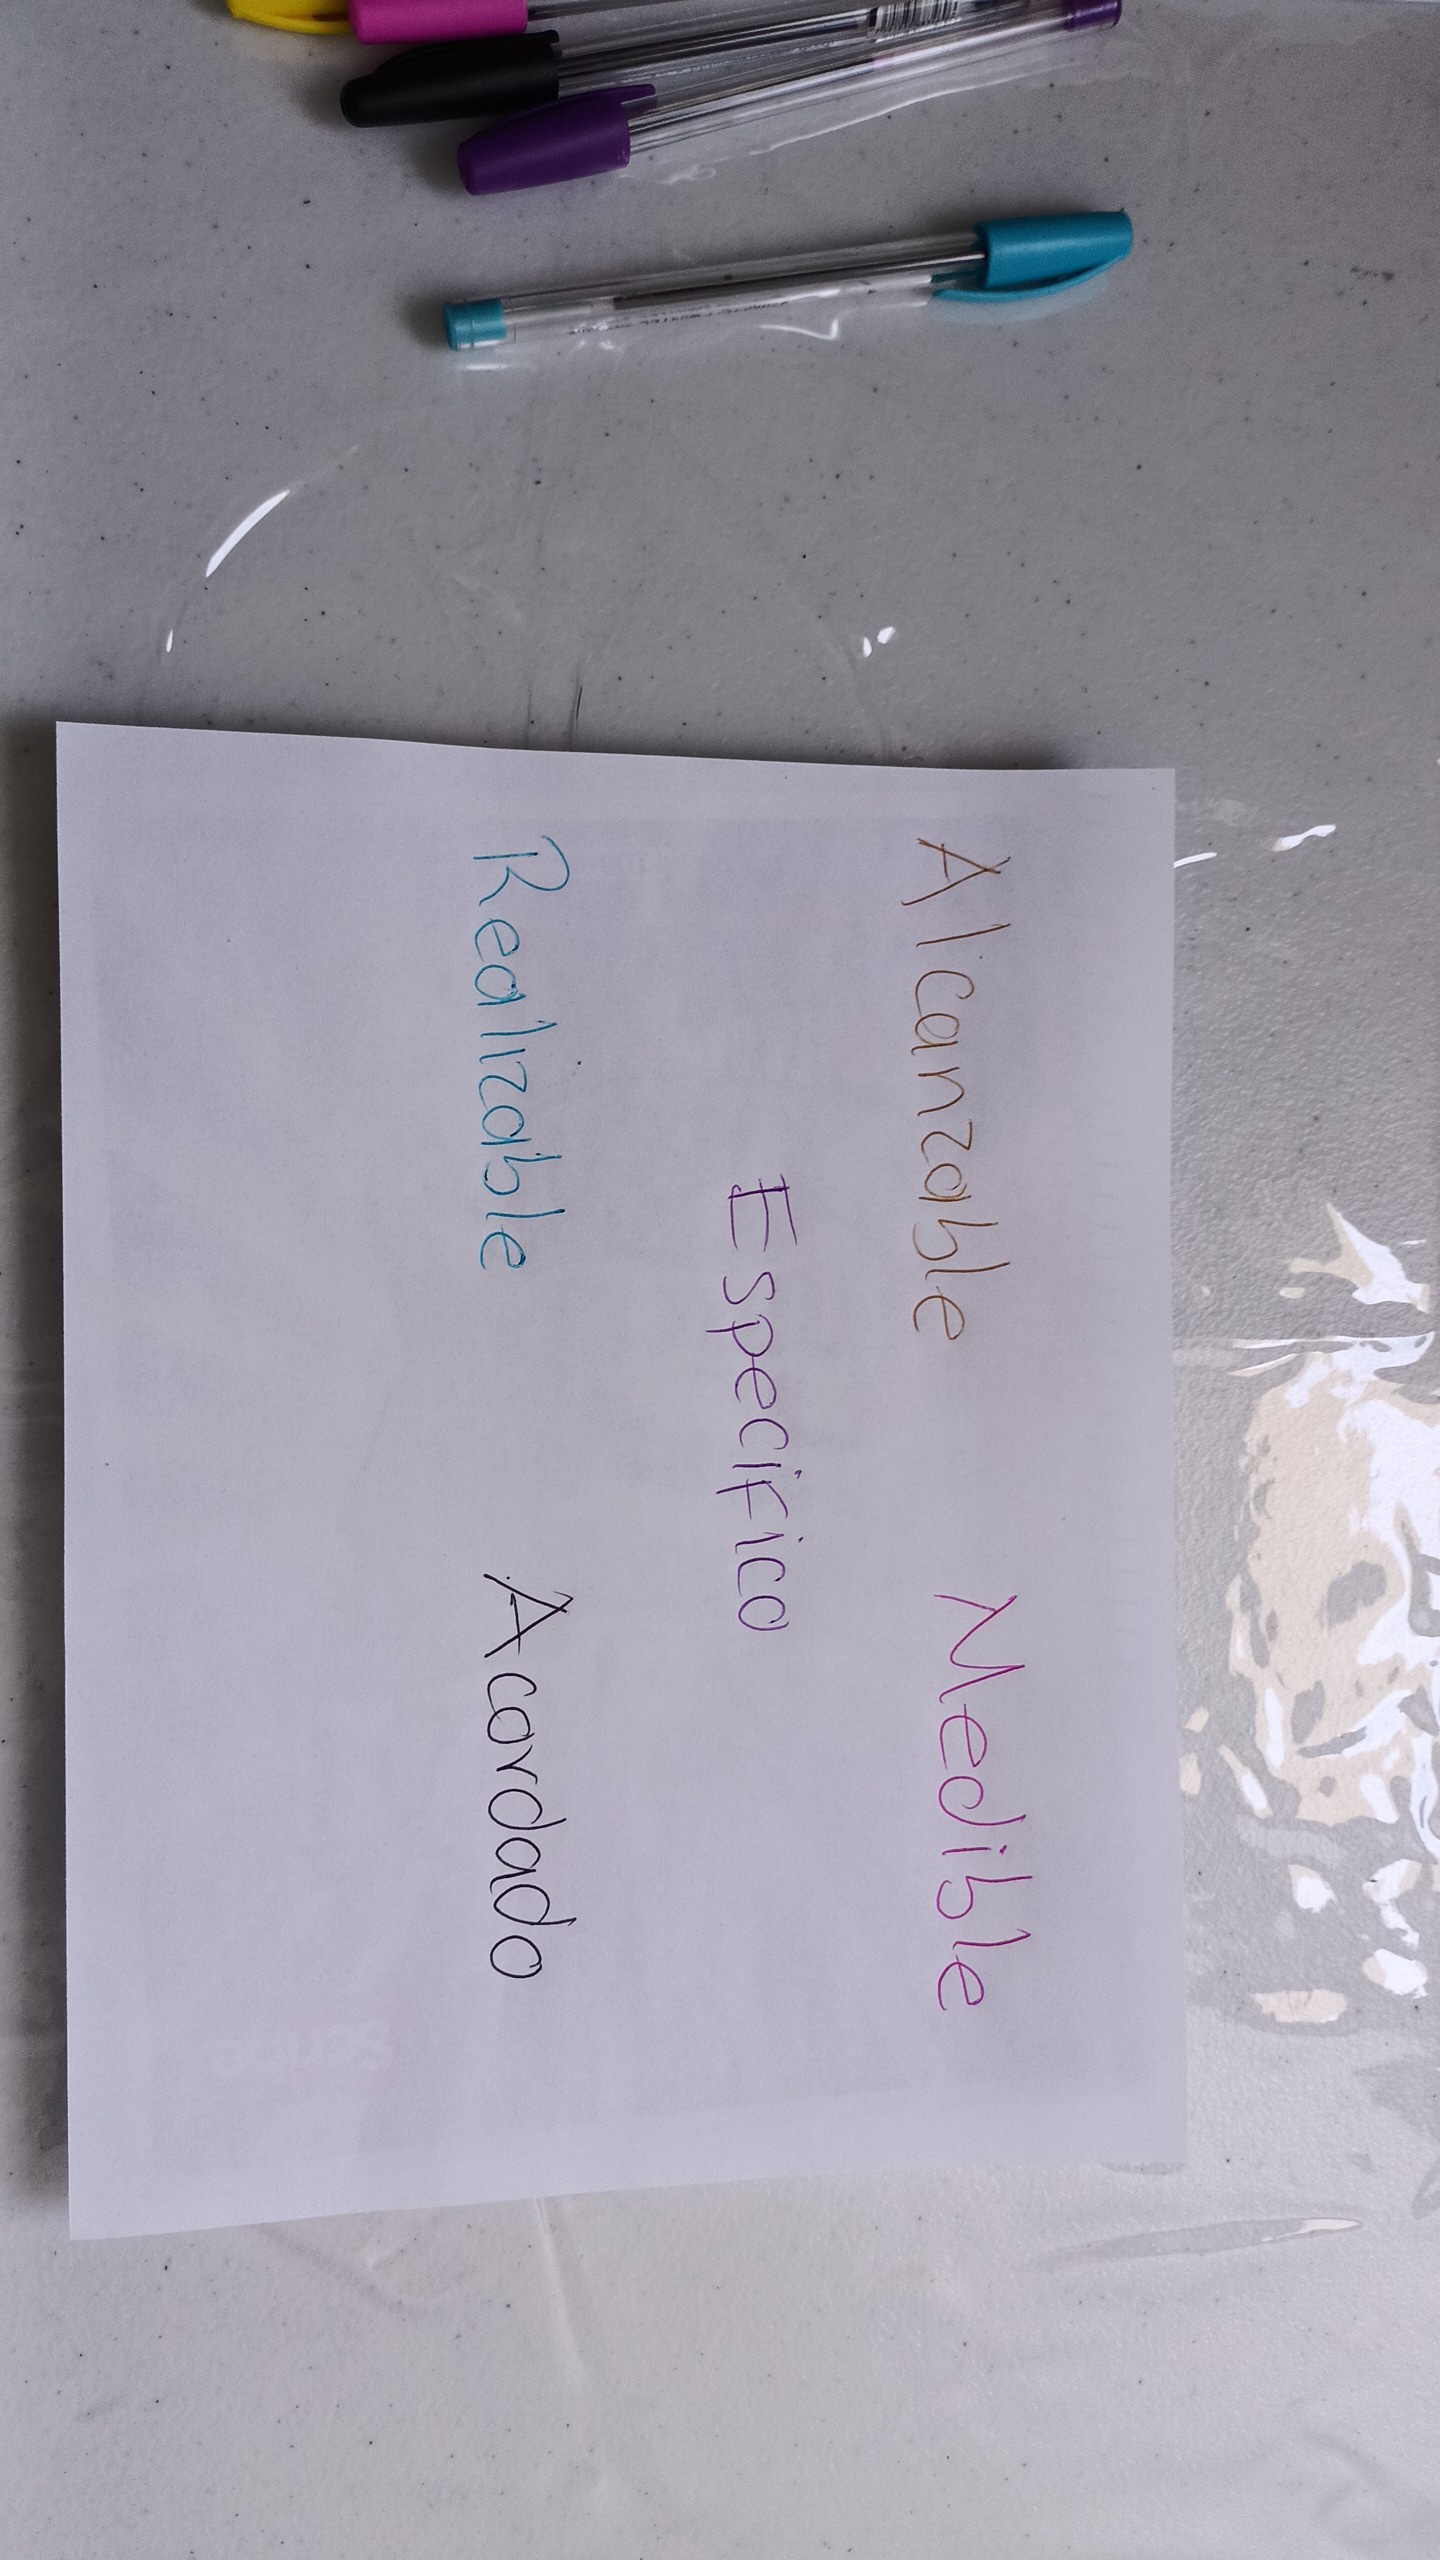 Alcanzable Medible
Específico
Realizable Acordado